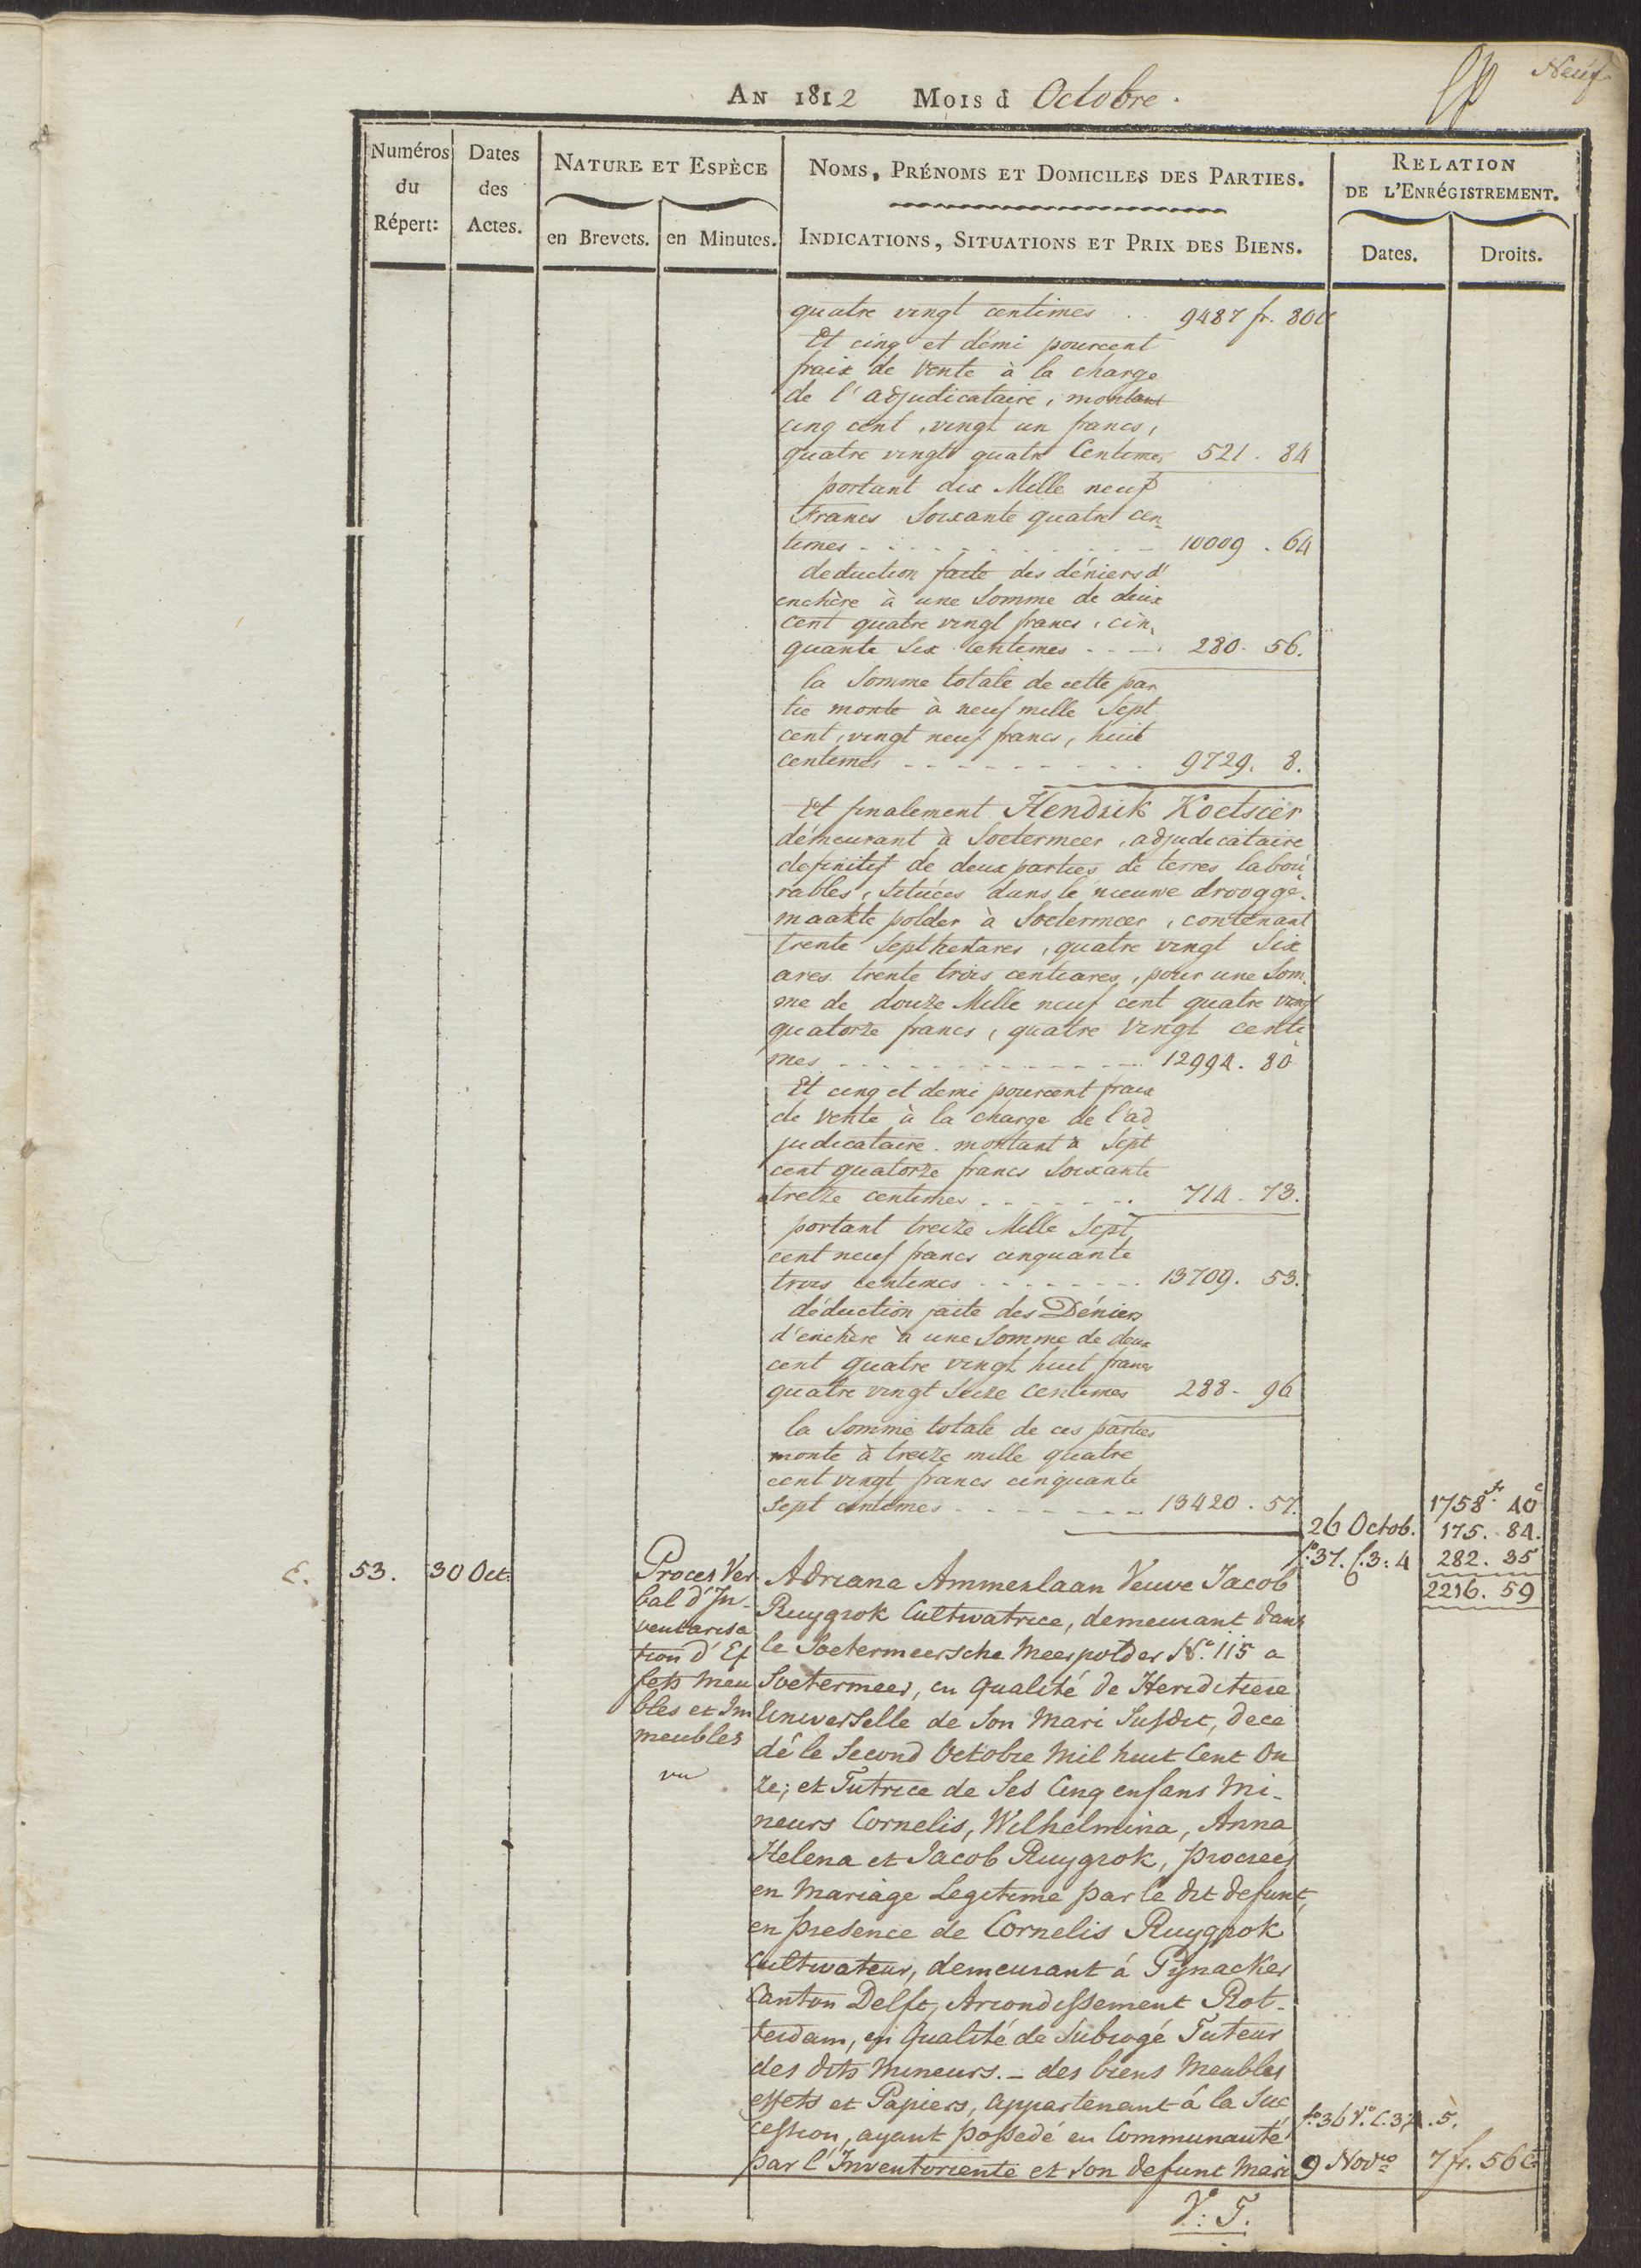 Neuf
AN 1812 MOIS d Octobre.
Numéros du Répert:
Dates des Actes.
NATURE ET ESPÈCE
en Brevets. en Minutes.
NOMS, PRÉNOMS ET DOMICILES DES PARTIES.
INDICATIONS, SITUATIONS ET PRIX DES BIENS.
RELATION DE L'ENRÉGISTREMENT.
Dates. Droits.
quatre vingt centimes . . 9487 fr. 80 c
Et cinq et démi pourcent
fraix de vente à la charge
de l'adjudicataire, montant
cinq cent, vingt un francs,
quatre vingt quatre Centimes 521. 84
portant dix Mille neuf
Francs Soixante quatre cen
times - - - 10009. 64
deduction faite des déniers d'
enchère à une Somme de deux
cent quatre vingt francs, cin,
quante Six Centimes - - - 280. 56.
la Somme totale de cette par
tie monte à neuf mille Sept
cent, vingt neuf francs, huit
centimes - - - 9729. 8.
Et finalement Hendrik Koetsier
démeurant à Soetermeer, adjudicataire
definitif de deux parties de terres labou
rables, Situées dans le nieuwe droogge-
maakte polder à Soetermeer, contenant
trente Sept hectares, quatre vingt Six
ares trente trois centiares, pour une Som-
me de douze Mille neuf cent quatre vingt
quatorze francs, quatre vingt centi
mes - - - 12994. 80
Et cinq et demi pourcent fraix
de vente à la charge de l'ad
judicataire. montant à Sept
cent quatorze francs Soixante
treize centimes - - - 714 - 73.
portant treize Mille Sept
cent neuf francs cinquante
trois centimes - - - 13709. 53.
déduction faite des Déniers
d'enchère à une Somme de deux
cent quatre vingt huit francs
quatre vingt Seize centimes 288 - 96
la Somme totale de ces parties
monte à treize mille quatre
cent vingt francs cinquante
Sept centimes - - - 13420. 57.
26 Octob.
fo. 37. C. 3. 4
1758 fr. 40 c
175. 84.
282. 35
2216. 59
E. 53. 30 Oct:
Proces Ver
bal d'In-
ventarisa
tion d'Ef
fets meu
bles et Im
meubles
vu
Adriana Ammerlaan Veuve Jacob
Ruygrok Cultivatrice, demeurant dans
le Soetermeersche Meerpolder No. 115 a
Soetermeer, en Qualité de Hereditiere
Universelle de Son Mari Susdit, dece
dé le Second Octobre Mil huit Cent On
ze; et Tutrice de Ses Cinq enfans Mi-
neurs Cornelis, Wilhelmina, Anna
Helena et Jacob Ruygrok, procreés
en Mariage Legitime par le dit defunt,
en presence de Cornelis Ruygrok
Cultivateur, demeurant á Pynacker
Canton Delft, Arrondissement Rot-
terdam, en Qualité de Subrogé Tuteur
des dits Mineurs. - des biens Meubles
effets et Papiers, appartenant á la Suc
cession, ayant possedé en Communauté
par l'Inventoriente et Son defunt Mari
fo. 36 Vo. C. 3, 4. 5.
9 Novre 7 fr. 56 C
V: T.